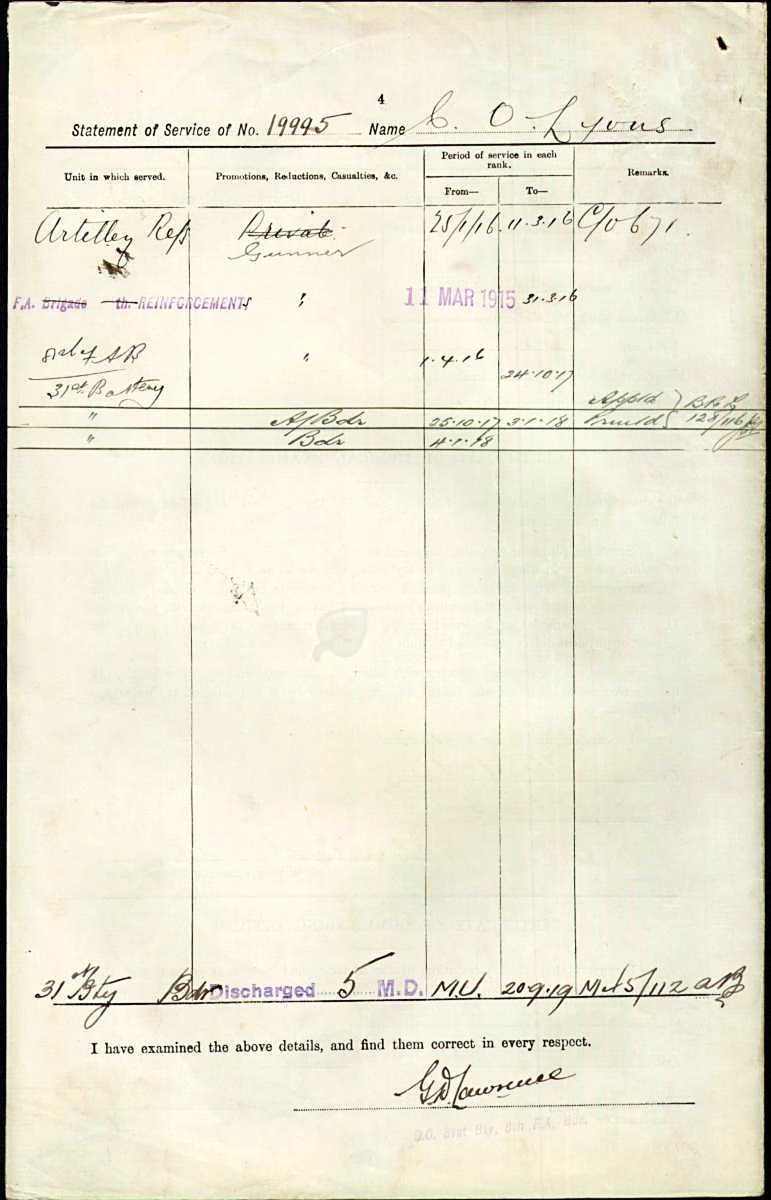 4
Statement of Service of No. 19995 Name C. O. Lyons
Unit in which served. Promotions, Reductions, Casualties, &c. Period of service in each rank. Remarks.
From— To—
Artilley Refs Private 25/1/16 11.3.16 C/o 671.
Gunner
F.A. Brigade th. REINFORCEMENTs " 11 MAR 1915 31.3.16
" 1.4.16 24.10.17
31st Battery
" A/Bdr 25.10.17 3.1.18 Appld B.R.
" Bdr 4.1.18
31st Bty Bdr Discharged 5 M.D. M.U. 20.9.19 5/112
I have examined the above details, and find them correct in every respect.
G.D. Lawrence
O.C. 31st Bty, 8th F.A. Bde.